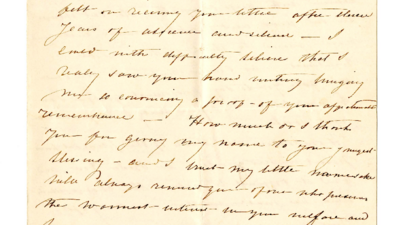 felt on receiving your letter after three
years of absence and silence — I
could with difficulty believe that I
really saw your hand writing bringing
me so convincing a proof of your
remembrance — How much do I thank
you for giving my name to your youngest
blessing — and I trust my little namesake
will always remind you of one who
the warmest interest in your welfare and